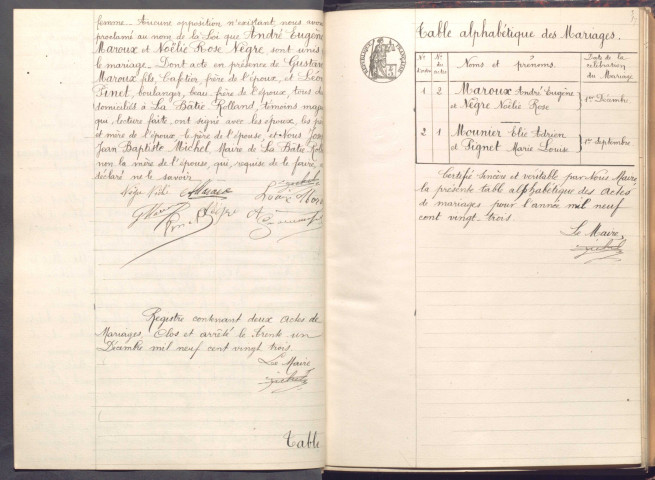 femme. Aucune opposition n'existant, nous avons
proclamé au nom de la Loi que André Eugène
Maroux et Noëlie Rose Nègre sont unis
le mariage. Dont acte en présence de Gustave
Maroux fils, Cafetier, frère de l'époux, et Léon
Pinet, boulanger, beau-frère de l'époux, tous deux
domiciliés à La Bâtie Rolland, témoins maj
qui, lecture faite, ont signé avec les époux, les pè
et mère de l'époux, le père de l'épouse, et Nous Jose
Jean Baptiste Michel, Maire de La Bâtie Roll
non la mère de l'épouse, qui, requise de le faire, a
déclaré ne le savoir.
Registre contenant deux actes de
Mariages, Clos et arrêté le trente un
Décembre mil neuf cent vingt trois.
Le Maire
Table
Table alphabétique des Mariages.
Nos d'ordre
Nos des actes
Noms et prénoms.
Date de la célébration du Mariage
1 2 Maroux André Eugène
et Nègre Noëlie Rose
1er Décembre
2 1 Mounier Elie Adrien
et Pignet Marie Louise
1er Septembre
Certifié Sincère et véritable par Nous Maire,
la présente table alphabétique des actes
de mariages pour l'année mil neuf
cent vingt trois.
Le Maire,